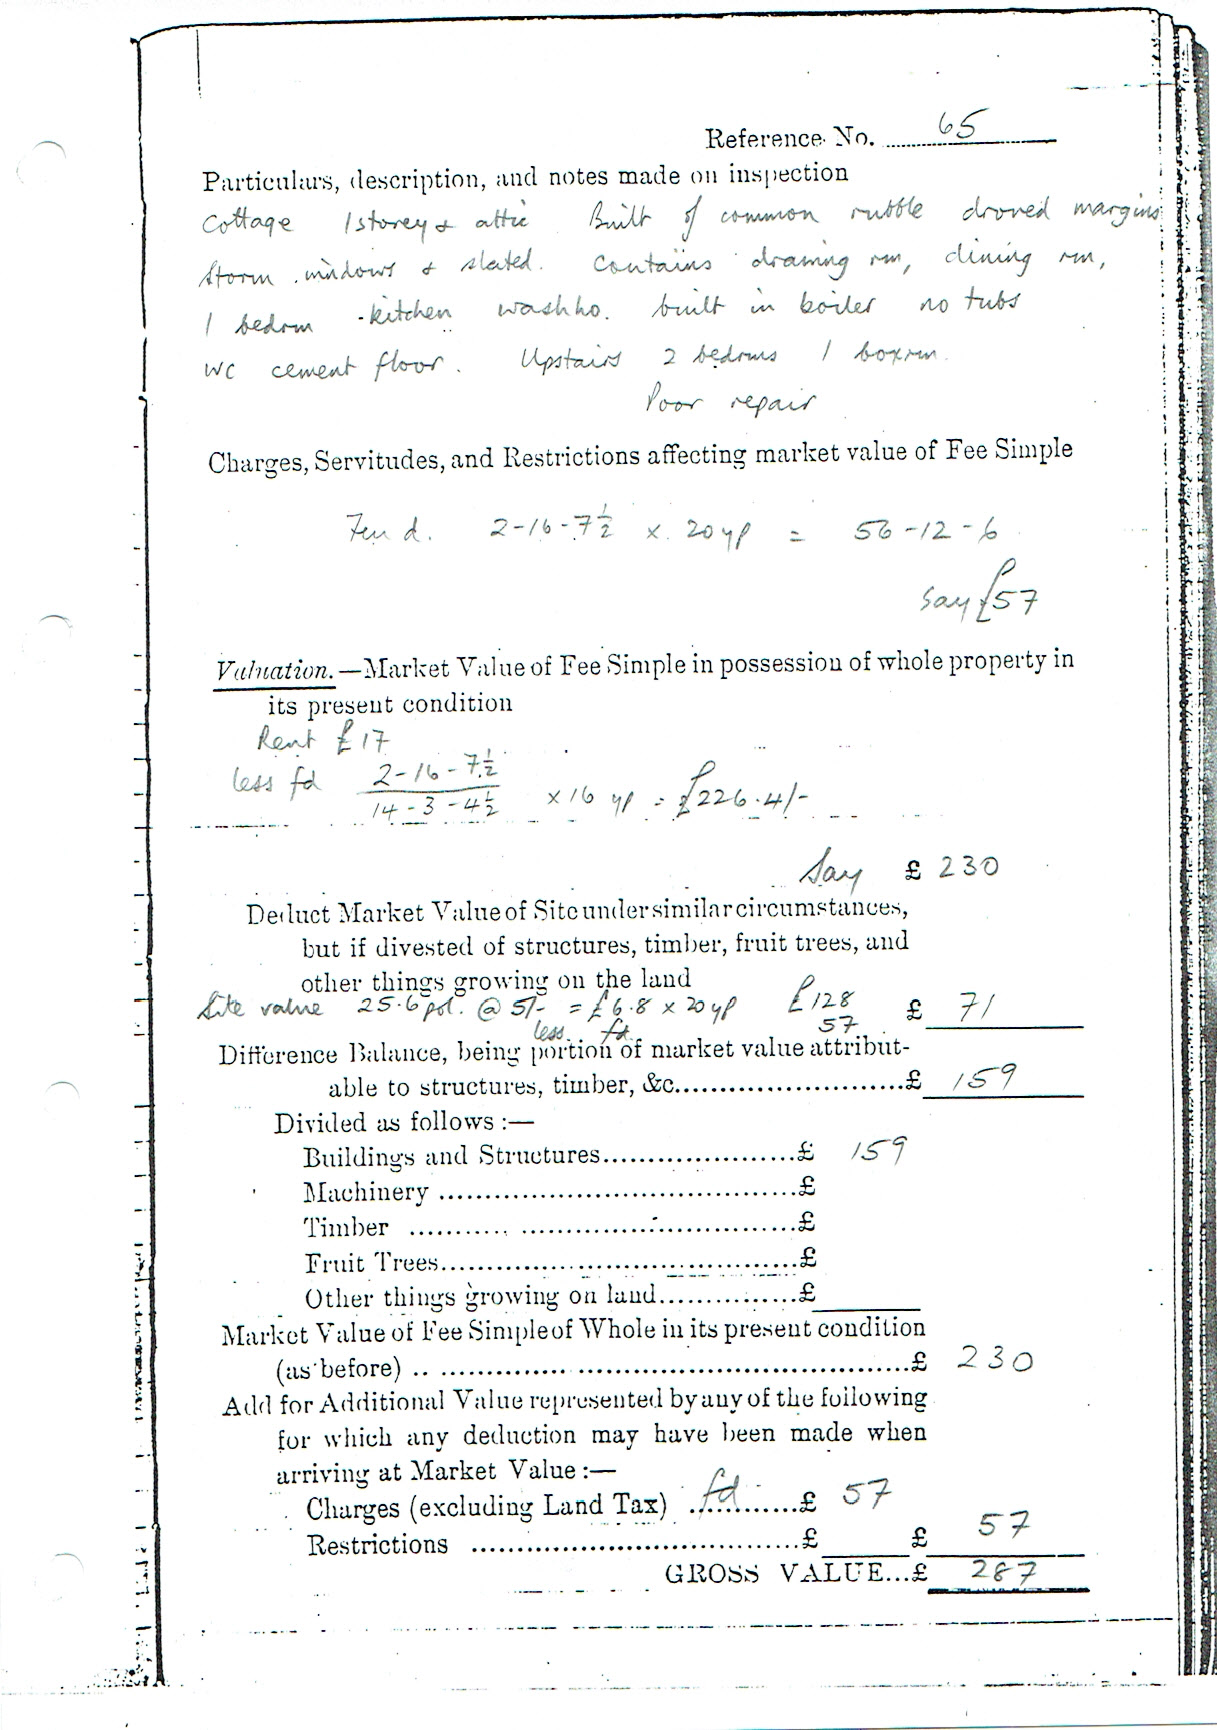 Reference No. 65
Particulars, description, and notes made on inspection
Cottage 1 storey & attic Built of common rubble droved margins
storm windows & slated. Contains drawing rm, dining rm,
1 bedrm kitchen washho. built in boiler no tubs
WC cement floor. Upstairs 2 bedrms 1 boxrm.
Poor repair
Charges, Servitudes, and Restrictions affecting market value of Fee Simple
Feu d. 2-16-7½ x 20 yp = 56-12-6
say £57
Valuation.—Market Value of Fee Simple in possession of whole property in
its present condition
Rent £17
less fd 2-16-7½
14-3-4½ x 16 yp = £226.4/-
Say £ 230
Deduct Market Value of Site under similar circumstances,
but if divested of structures, timber, fruit trees, and
other things growing on the land
Site value 25.6 pol. @ 5/- = £6.8 x 20 yp £128 £ 71
less fd 57
Difference Balance, being portion of market value attribut-
able to structures, timber, &c.............................£ 159
Divided as follows :—
Buildings and Structures......................£ 159
Machinery .........................................£
Timber ...............................................£
Fruit Trees.........................................£
Other things growing on land................£
Market Value of Fee Simple of Whole in its present condition
(as before) .........................................................£ 230
Add for Additional Value represented by any of the following
for which any deduction may have been made when
arriving at Market Value :—
Charges (excluding Land Tax) fd............£ 57
Restrictions ......................................£ £ 57
GROSS VALUE...£ 287